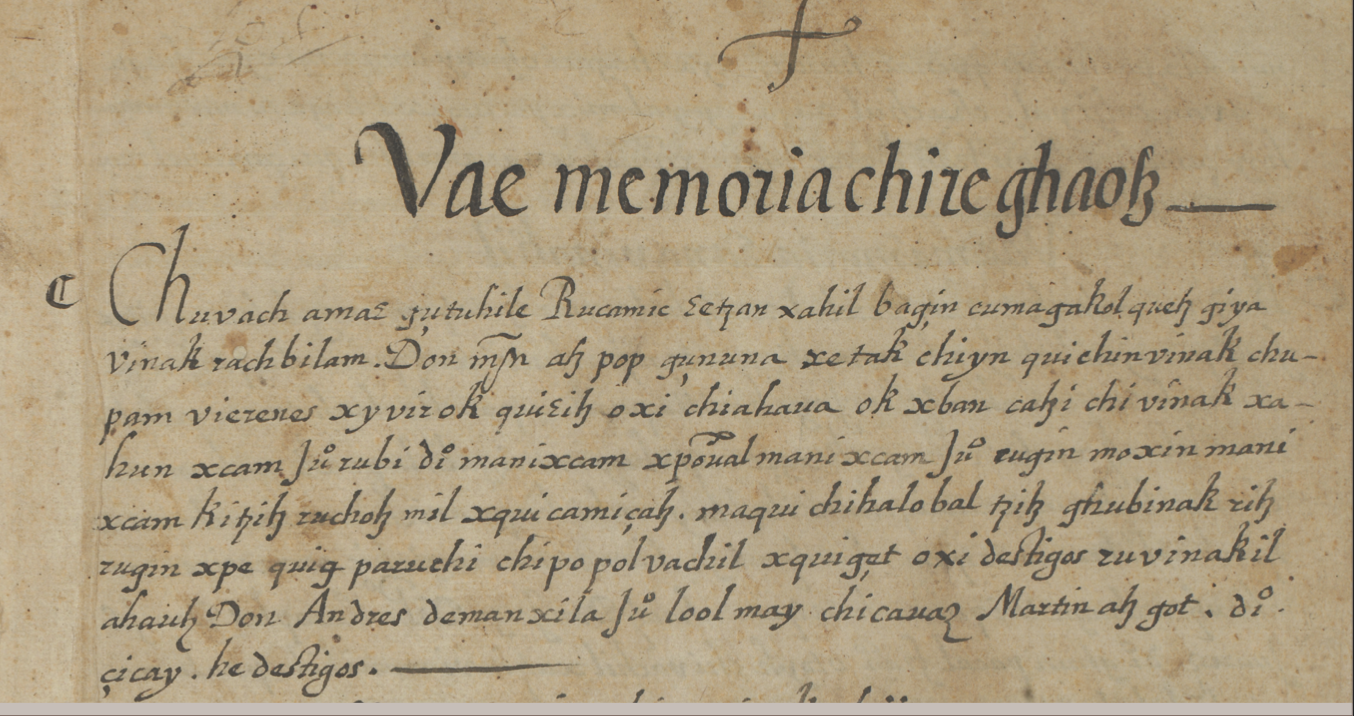 Vae memoria chire ghaoꜩ
Chuvach amaꜫ ꜭutuhile Rucamic ꜫetꜭan xahil bagin cumagakol queh giya
vinak rachbilam. Don mȓn ah pop gununa xetak chiyn quichin vinak chu-
pam vierenes xy virok quiꜫih oxi chiahaua ok xban cahi chi vinak xa-
hun xcam Juº rubi diº mani xcam xpoual mani xcam Juº rugin moxin mani
xcam kitꜭih ruchoh mil xqui camiçah. maqui chihalobal tꜭih ghubinak rih
rugin xpe quig paruchi chipopol vachil xquiget oxi destigos ruvinakil
ahauh Don Andres demanxila Juº lool may chiçauaꜫ Martin ah got. diº.
çicay. he destigos.